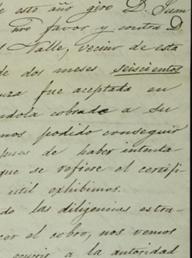 de este año giró D. Juan
nro favor y contra D.
Valle, vecino de esta
de dos meses seiscientos
fue aceptada en
cobrada a su
mos podido conseguir
pues de haber intenta
que se refiere el certifi
util exhibimos.
do las diligencias estra
cer el cobro, nos vemos
a la autoridad